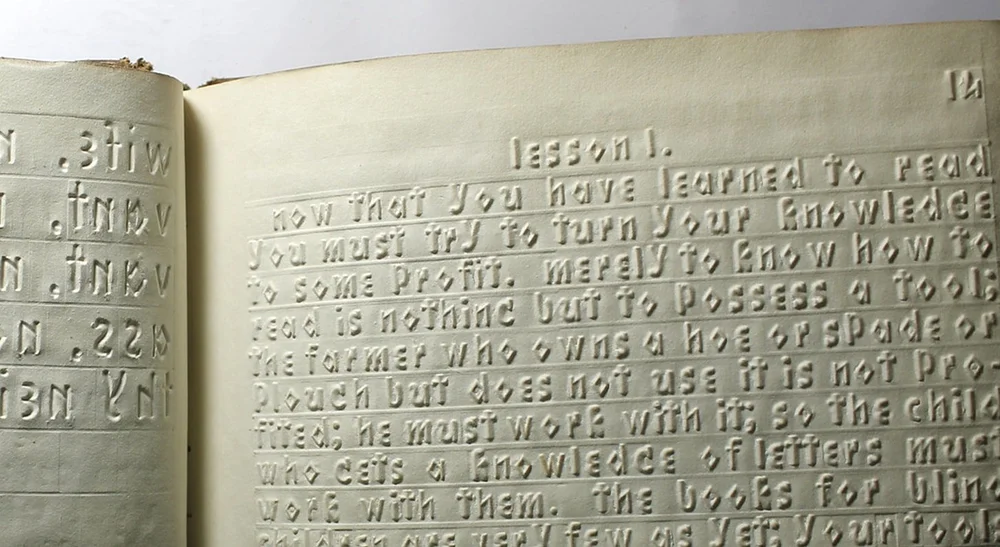 wife,
vant,
vant,
ass,
thy
lesson 1.
now that you have learned to read
you must try to turn your knowledge
to some profit. merely to know how to
read is nothing but to possess a tool;
the farmer who owns a hoe or spade or
plough but does not use it is not pro-
fited; he must work with it; so the child
who gets a knowledge of letters must
work with them. the books for blind
children are very few as yet; your tool